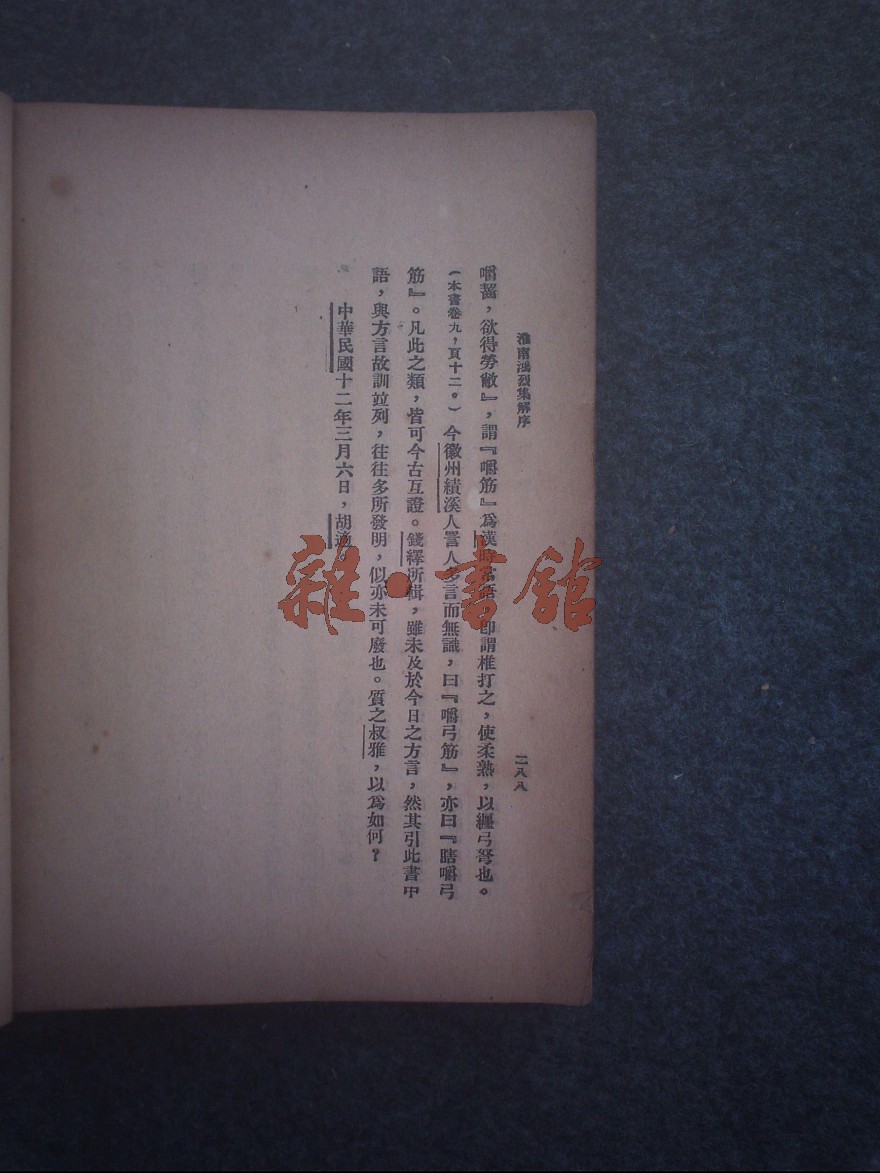 淮南鴻烈集解序
二八八
嚼齧,欲得勞敝』,謂『嚼筋』爲漢時常語,卽謂椎打之,使柔熟,以纏弓弩也。
(本書卷九,頁十二。)今徽州績溪人詈人多言而無識,曰『嚼弓筋』,亦曰『瞎嚼弓
筋』。凡此之類,皆可今古互證。錢繹所輯,雖未及於今日之方言,然其引此書中
語,與方言故訓竝列,往往多所發明,似亦未可廢也。質之叔雅,以爲如何?
中華民國十二年三月六日,胡適。
雜·書館